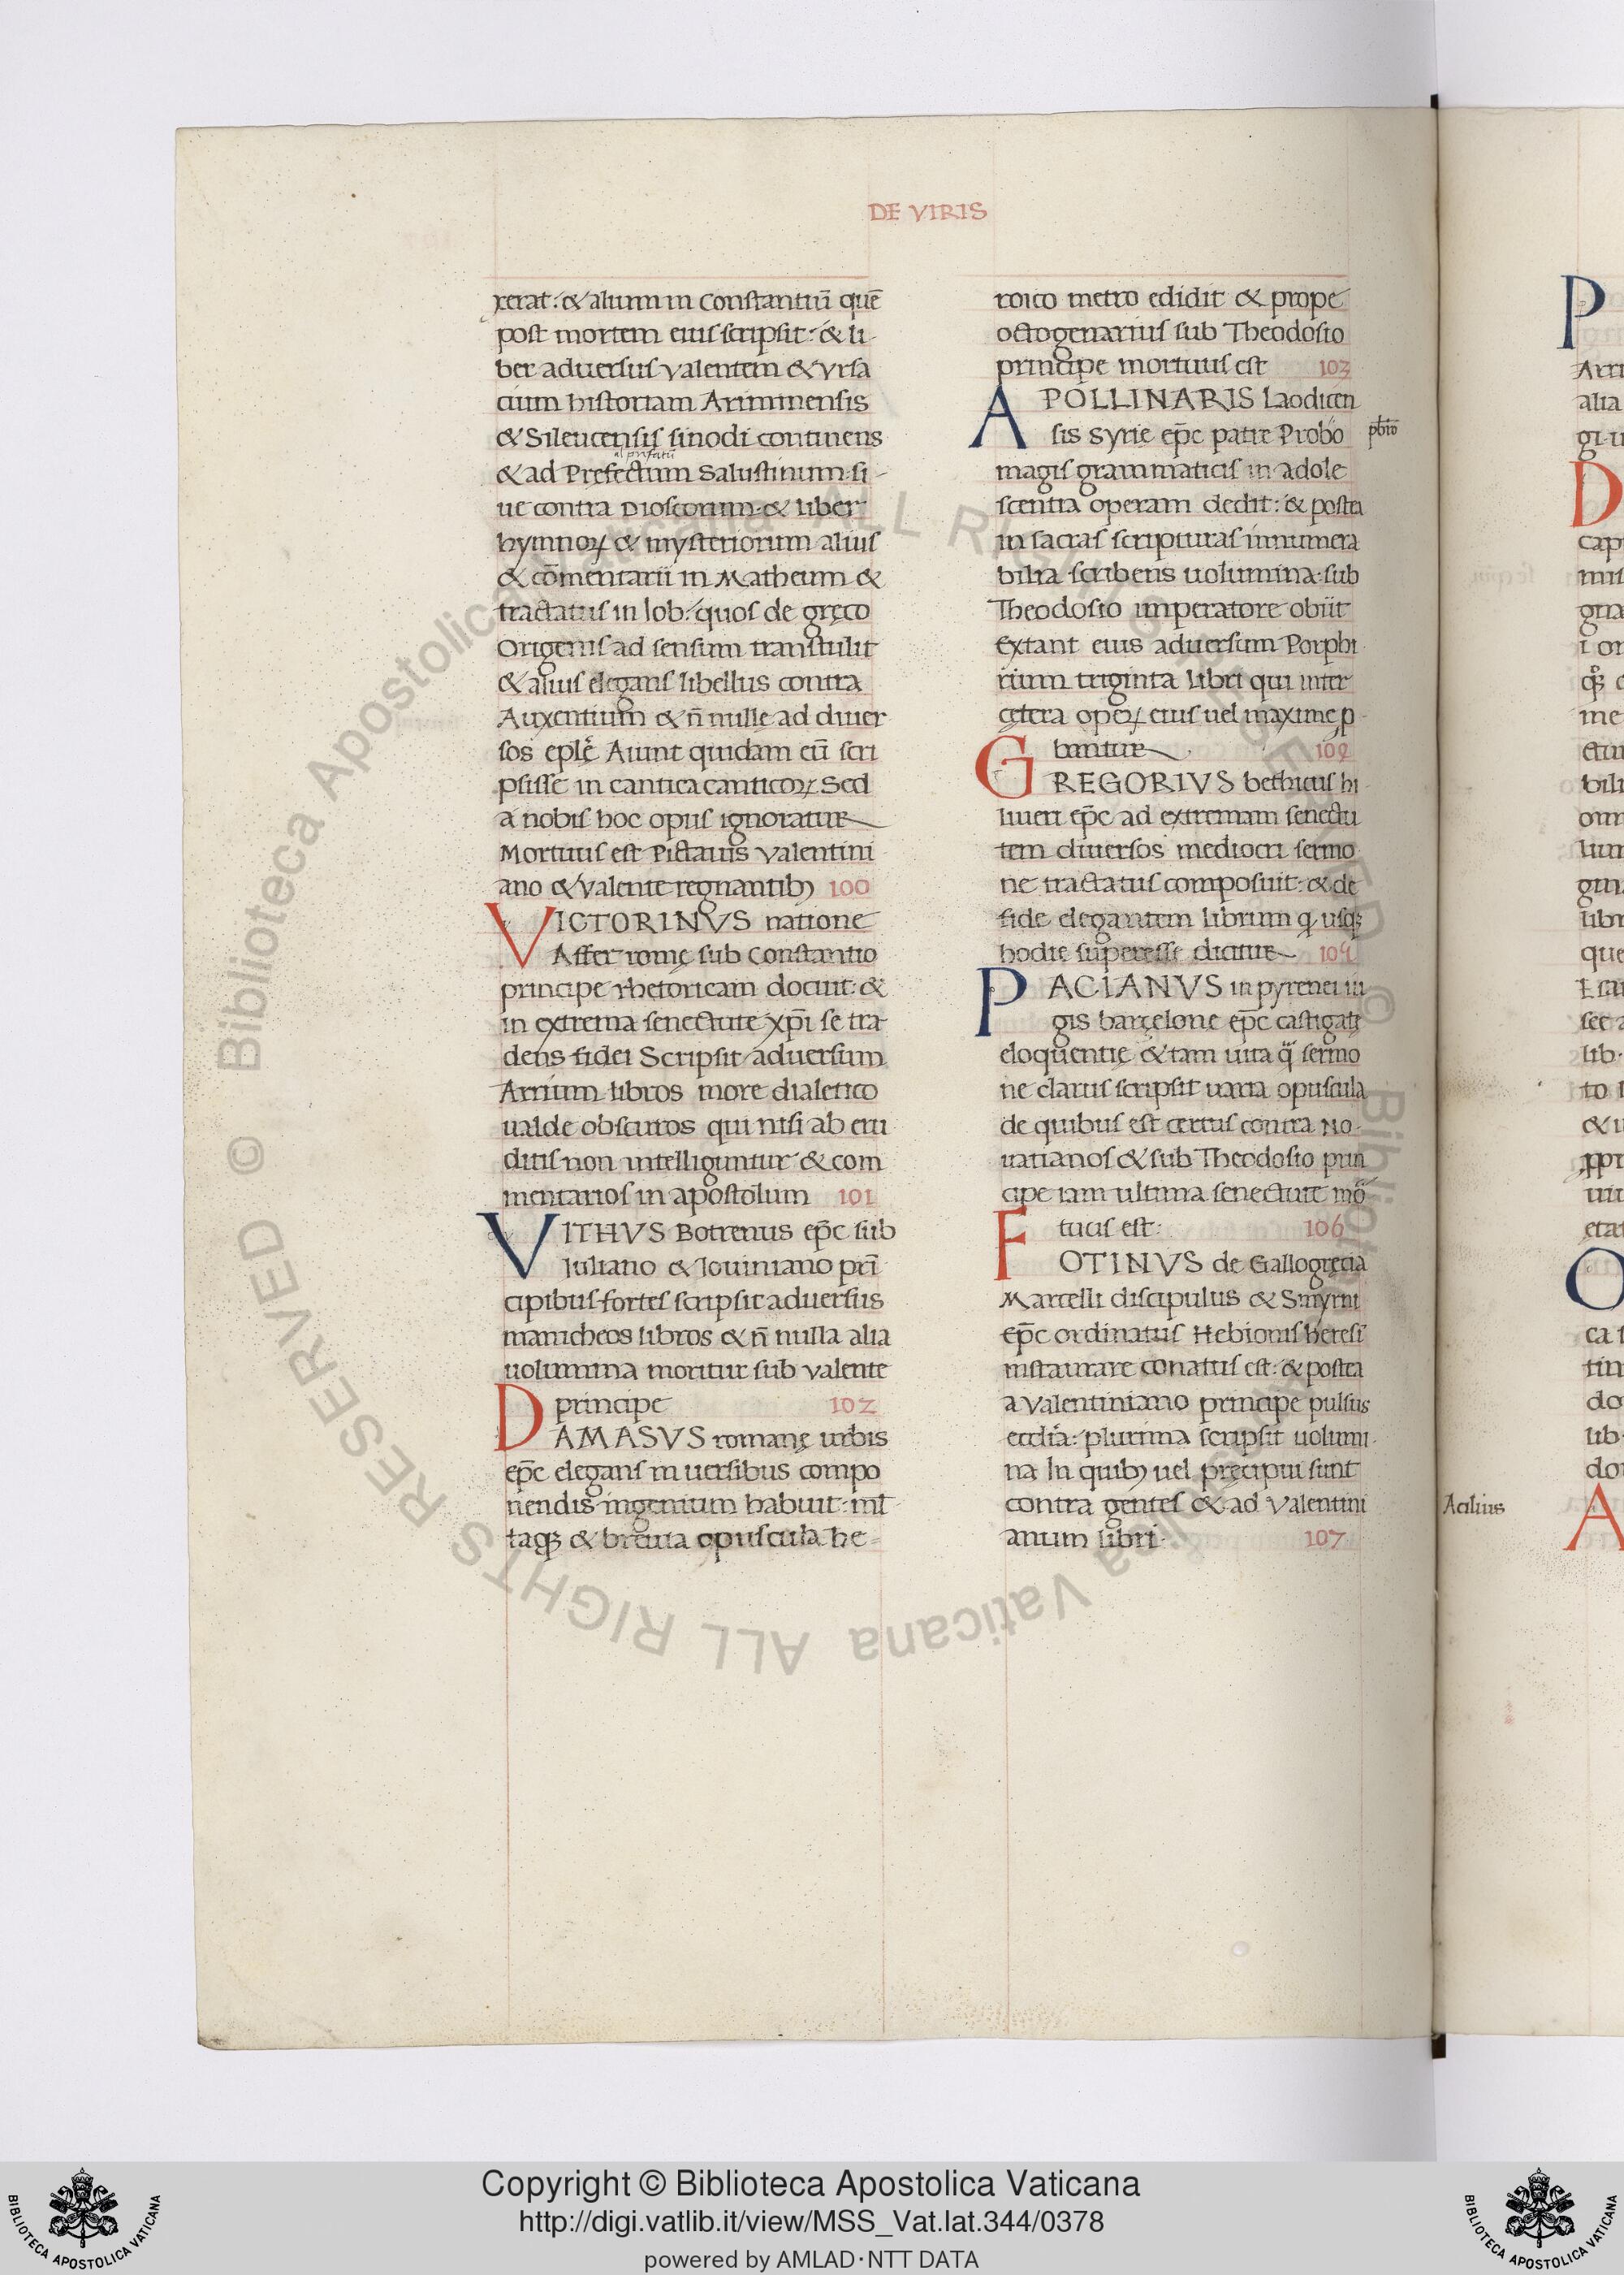 DE VIRIS
xerat: & alium in Constantiū quē
post mortem eius scripsit: & li-
ber aduersus Valentem & Vrsa
cium historiam Ariminensis
& Sileucensis sinodi continens
al prefatū
& ad Prefectum Salustinum: si-
ue contra Dioscorum: & liber
hymnoꝝ & mysteriorum alius
& cōmentarii in Matheum &
tractatus in Iob: quos de gręco
Origenis ad sensum transtulit
& alius elegans libellus contra
Auxentium & n̄ nulle ad diuer
sos eplę̄ Aiunt quidam eū scri
psisse in cantica canticoꝝ Sed
a nobis hoc opus ignoratur
Mortuus est Pictauis Valentini
ano & Valente regnantibꝫ 100
VICTORINVS natione
Affer romę sub Constantio
principe rhetoricam docuit: &
in extrema senectute xp̄i se tra
dens fidei Scripsit aduersum
Arrium libros more dialetico
ualde obscuros qui nisi ab eru
ditis non intelliguntur & com
mentarios in apostolum 101
VITHVS Botrenus ep̄c sub
Iuliano & Iouiniano pri̅
cipibus fortes scripsit aduersus
manicheos libros & n̄ nulla alia
uolumina moritur sub Valente
principe 102
DAMASVS romanę urbis
ep̄c elegans in uersibus compo
nendis ingenium habuit: ml̄
taqꝫ & breuia opuscula he-
roico metro edidit & prope
octogenarius sub Theodosio
principe mortuus est 103
APOLLINARIS Laodicen
sis Syrię ep̄c patre Probo p̄bro
magis grammaticis in adole
scentia operam dedit: & postea
in sacras scripturas innumera
bilia scribens uolumina: sub
Theodosio imperatore obiit
Extant eius aduersum Porphi
rium triginta libri qui inter
cętera opeꝝ eius uel maxime ꝓ
bantur 104
GREGORIVS bethicus hi
liueri ep̄c ad extremam senectu
tem diuersos mediocri sermo
ne tractatus composuit: & de
fide elegantem librum q̣ usqꝫ
hodie superesse dicitur 105
PACIANVS in pyrenei iu
gis barcelone ep̄c castigatę
eloquentię & tam uita q̄ sermo
ne clarus scripsit uaria opuscula
de quibus est ceruus contra No-
uatianos & sub Theodosio prin
cipe iam ultima senectute mo
tuus est: 106
FOTINVS de Gallogręcia
Marcelli discipulus & Smyrni
ep̄c ordinatus Hebionis heresi
instaurare conatus est: & postea
a Valentiniano principe pulsus
ecclia: plurima scripsit uolumi-
na In quibꝫ uel pręcipui sunt
contra gentes & ad Valentini
anum libri 107
Acilius
Copyright © Biblioteca Apostolica Vaticana
http://digi.vatlib.it/view/MSS_Vat.lat.344/0378
powered by AMLAD·NTT DATA